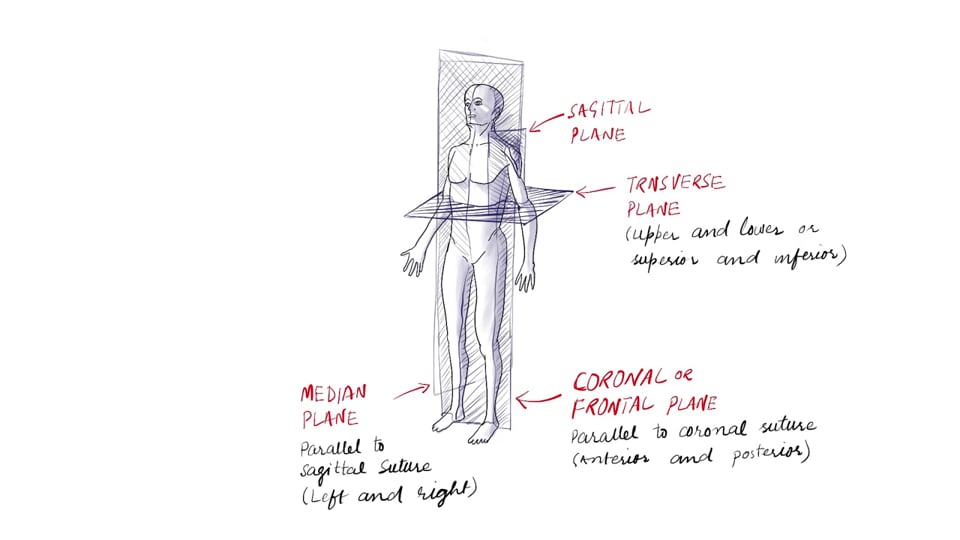 SAGITTAL
PLANE
TRNSVERSE
PLANE
(Upper and lower or
superior and inferior)
MEDIAN
PLANE
Parallel to
sagittal suture
(Left and right)
CORONAL OR
FRONTAL PLANE
Parallel to coronal suture
(Anterior and posterior)